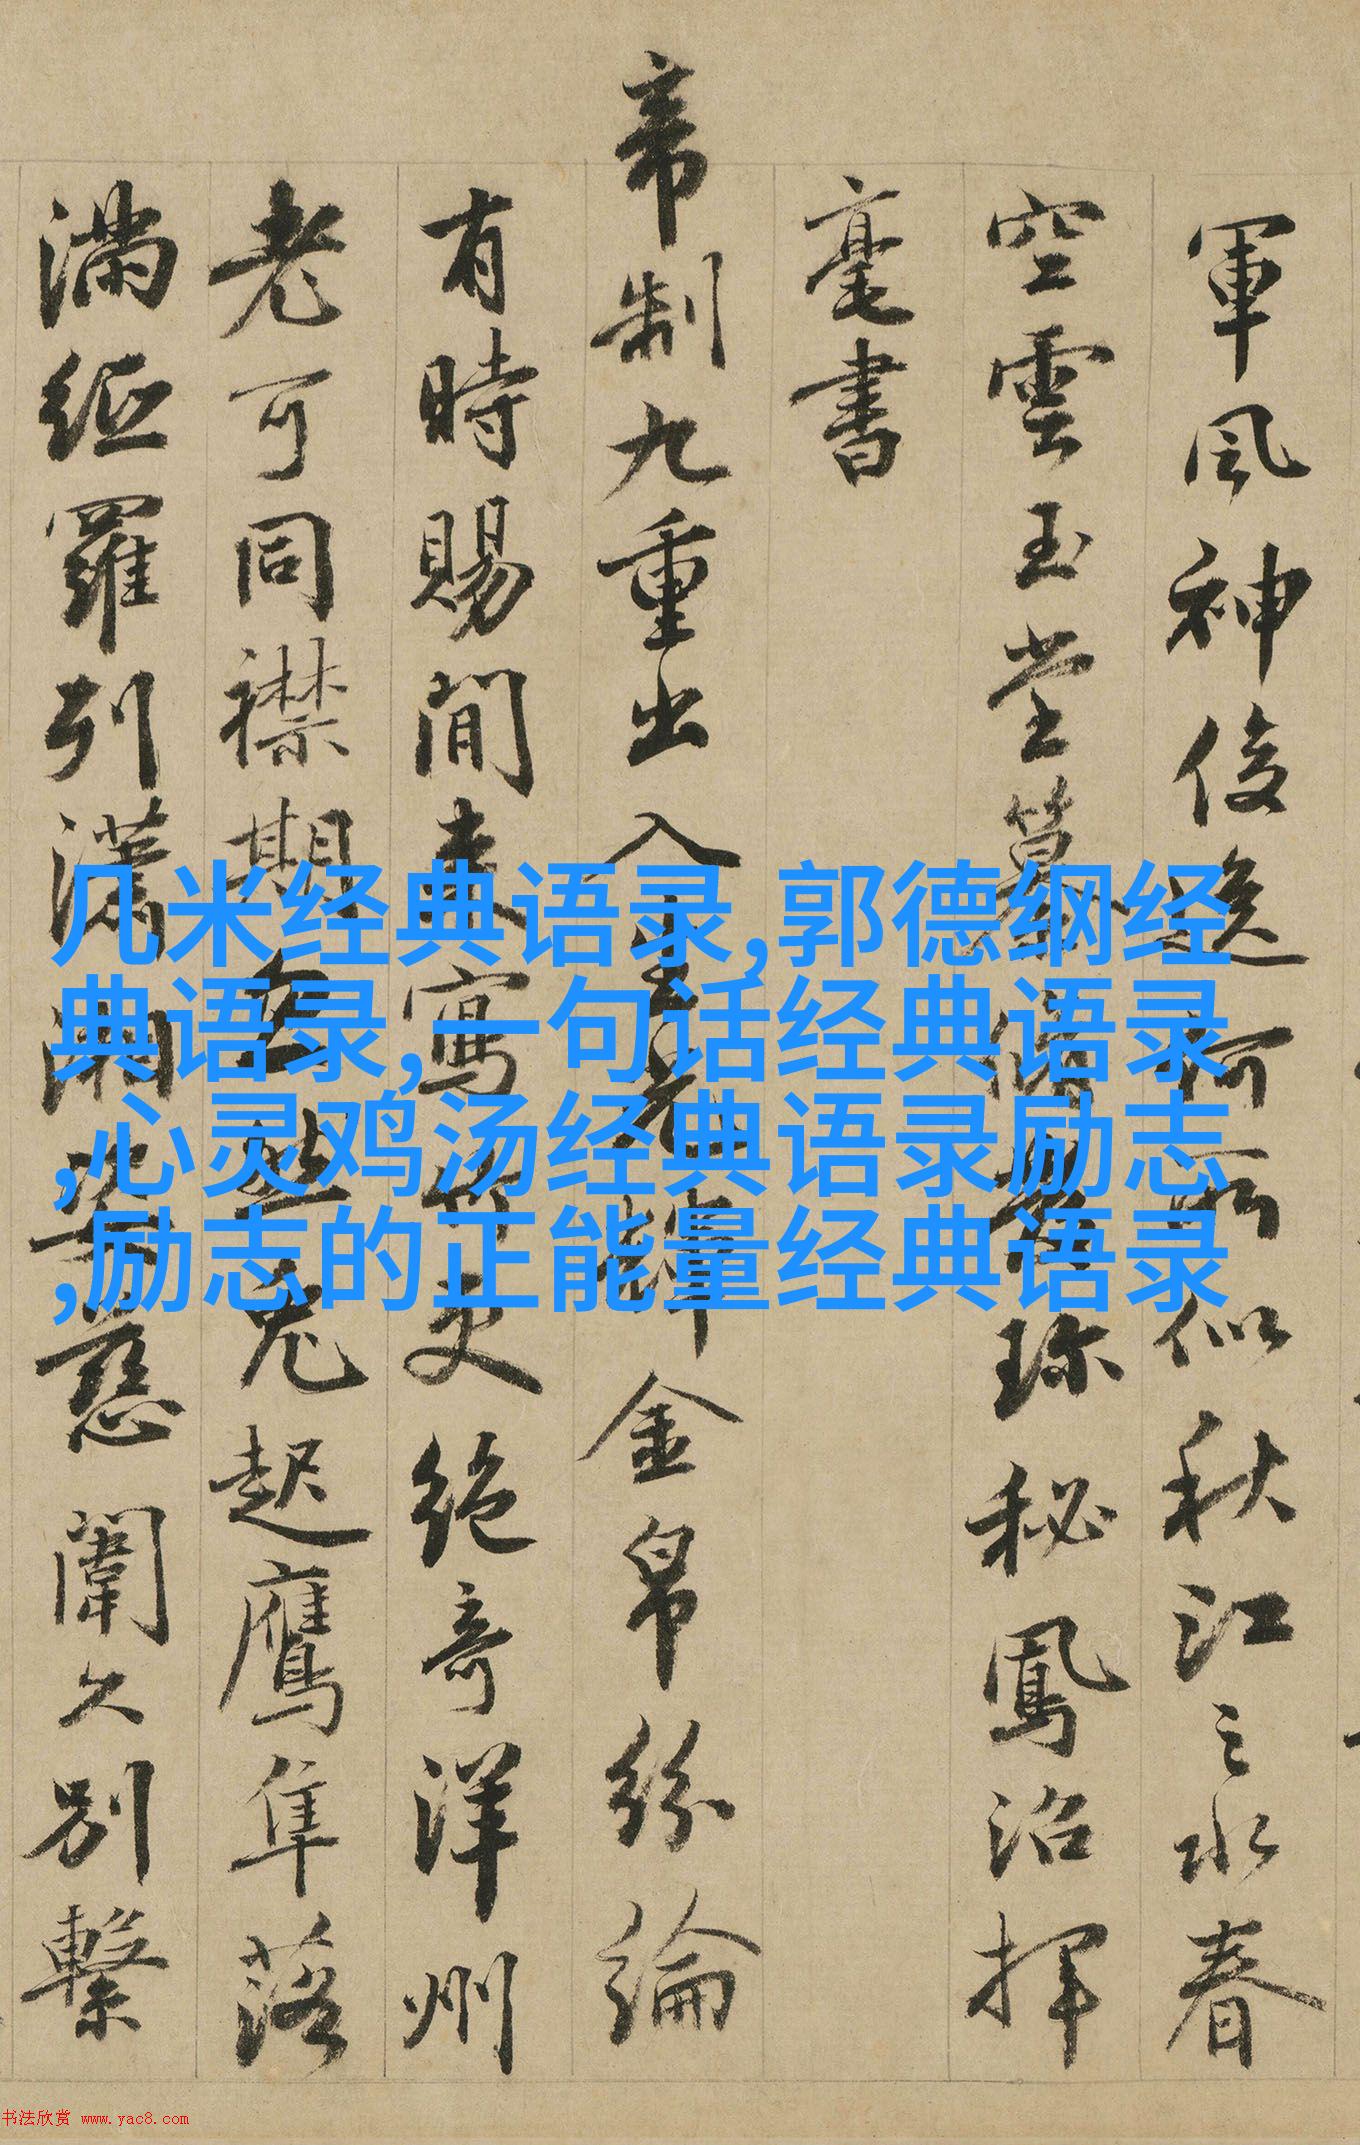 軍風神俊逸何所似秋江之水春
空雲玉堂
珎秘鳳沼揮
毫書
帝制九重出入
金帛紛綸
有時賜閒来寫
史絶奇洋州
老可同襟期
起鷹隼落
満絙羅列瀟湘姿
闈久别繋
几米经典语录,郭德纲经
典语录,一句话经典语录
,心灵鸡汤经典语录励志
,励志的正能量经典语录
书法欣赏 www.yac8.com